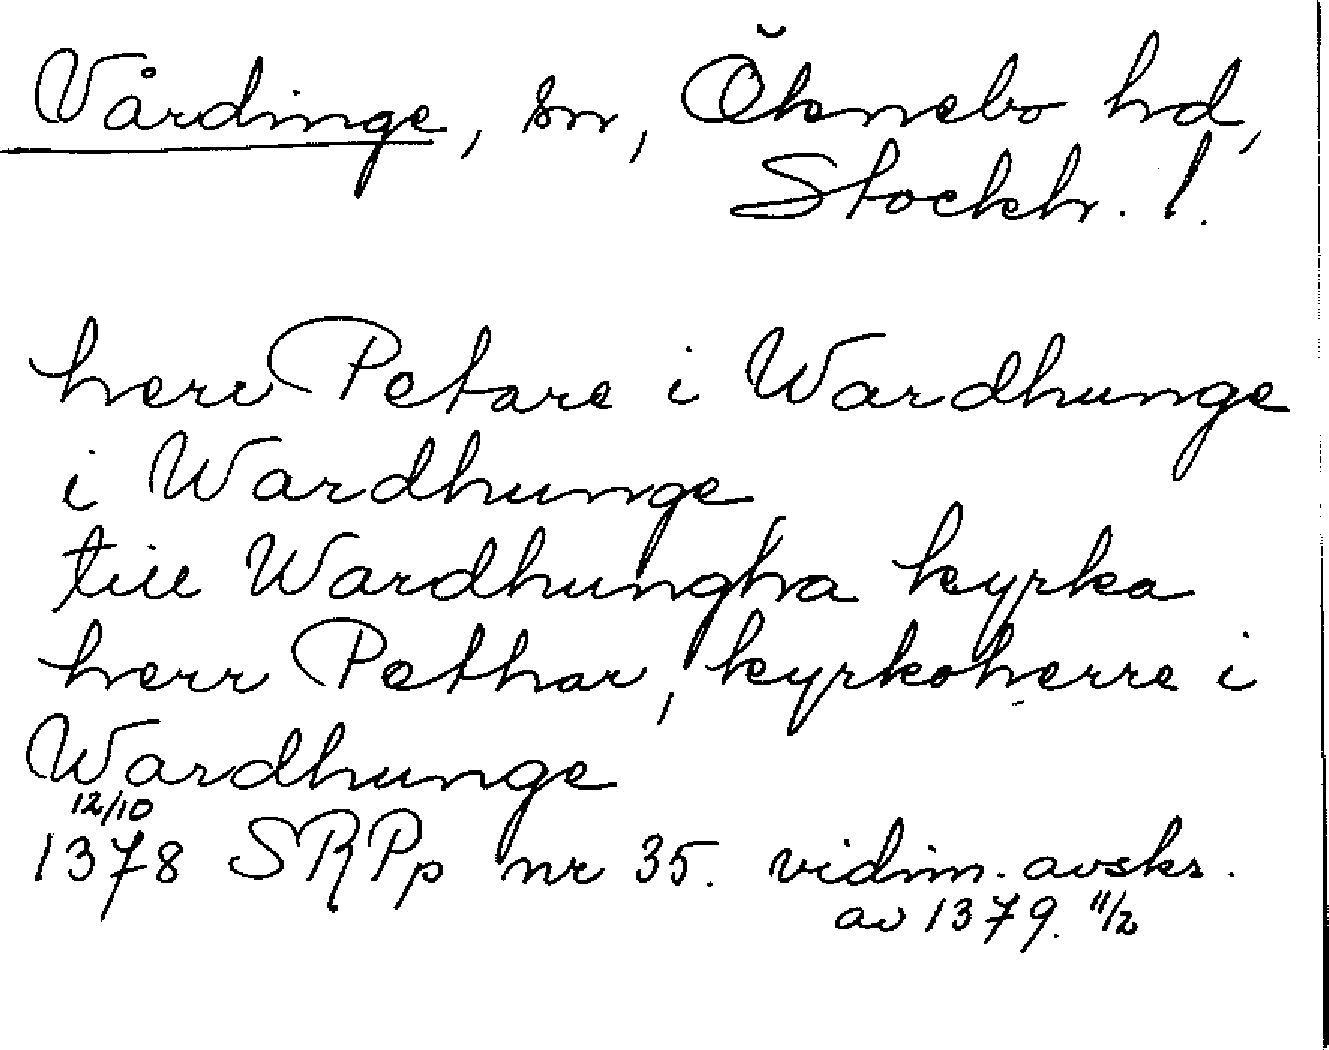 Vårdinge, sn, Öknebo hd,
Stockh. l.
herr Petare i Wardhunge
i Wardhunge
till Wardhungha kyrka
herr Pethar, kyrkoherre i
Wardhunge
12/10
1378 SRPp nr 35. vidim. avskr.
av 1379. 11/2